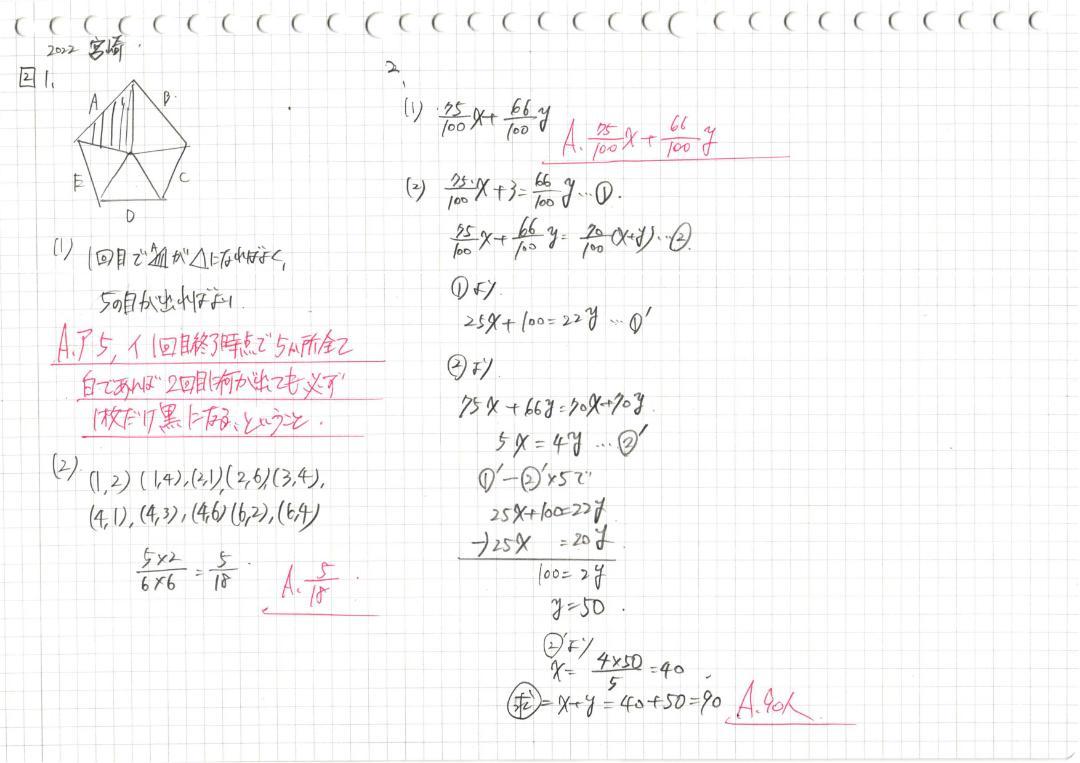 2022 宮崎
2 1,
A
B
E
C
D
(1) 1回目でAがになればよく,
5の目が出ればよい.
A.ア 5, イ 1回目終了時点で5ヵ所全て
白であれば 2回目に何が出ても必ず
1枚だけ黒になる、ということ.
(2) (1,2) (1,4), (2,1), (2,6), (3,4),
(4,1), (4,3), (4,6) (6,2), (6,4)
5×2/6×6 = 5/18
A. 5/18
2,
(1) 75/100 x + 66/100 y
A. 75/100 x + 66/100 y
(2) 75/100 x + 3 = 66/100 y … ①.
75/100 x + 66/100 y = 70/100 (x+y) … ②
①より
25x + 100 = 22y … ①'
②より
75x + 66y = 70x + 70y
5x = 4y … ②'
①' - ②'×5で
25x + 100 = 22y
-) 25x = 20y
100 = 2y
y = 50.
②'より
x = 4×50/5 = 40
求 = x+y = 40+50 = 90
A. 90人